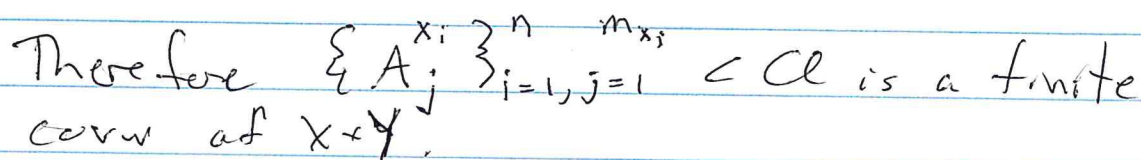 Therefore {A_j^{x_i}}_{i=1, j=1}^{n m_{x_i}} ⊂ 𝒜 is a finite
cover of X×Y.